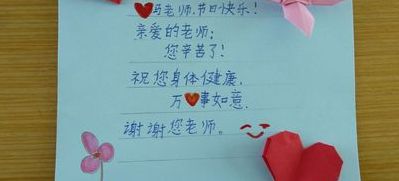 冯老师,节日快乐!
亲爱的老师:
您辛苦了!
祝您身体健康,
万事如意.
谢谢您老师。